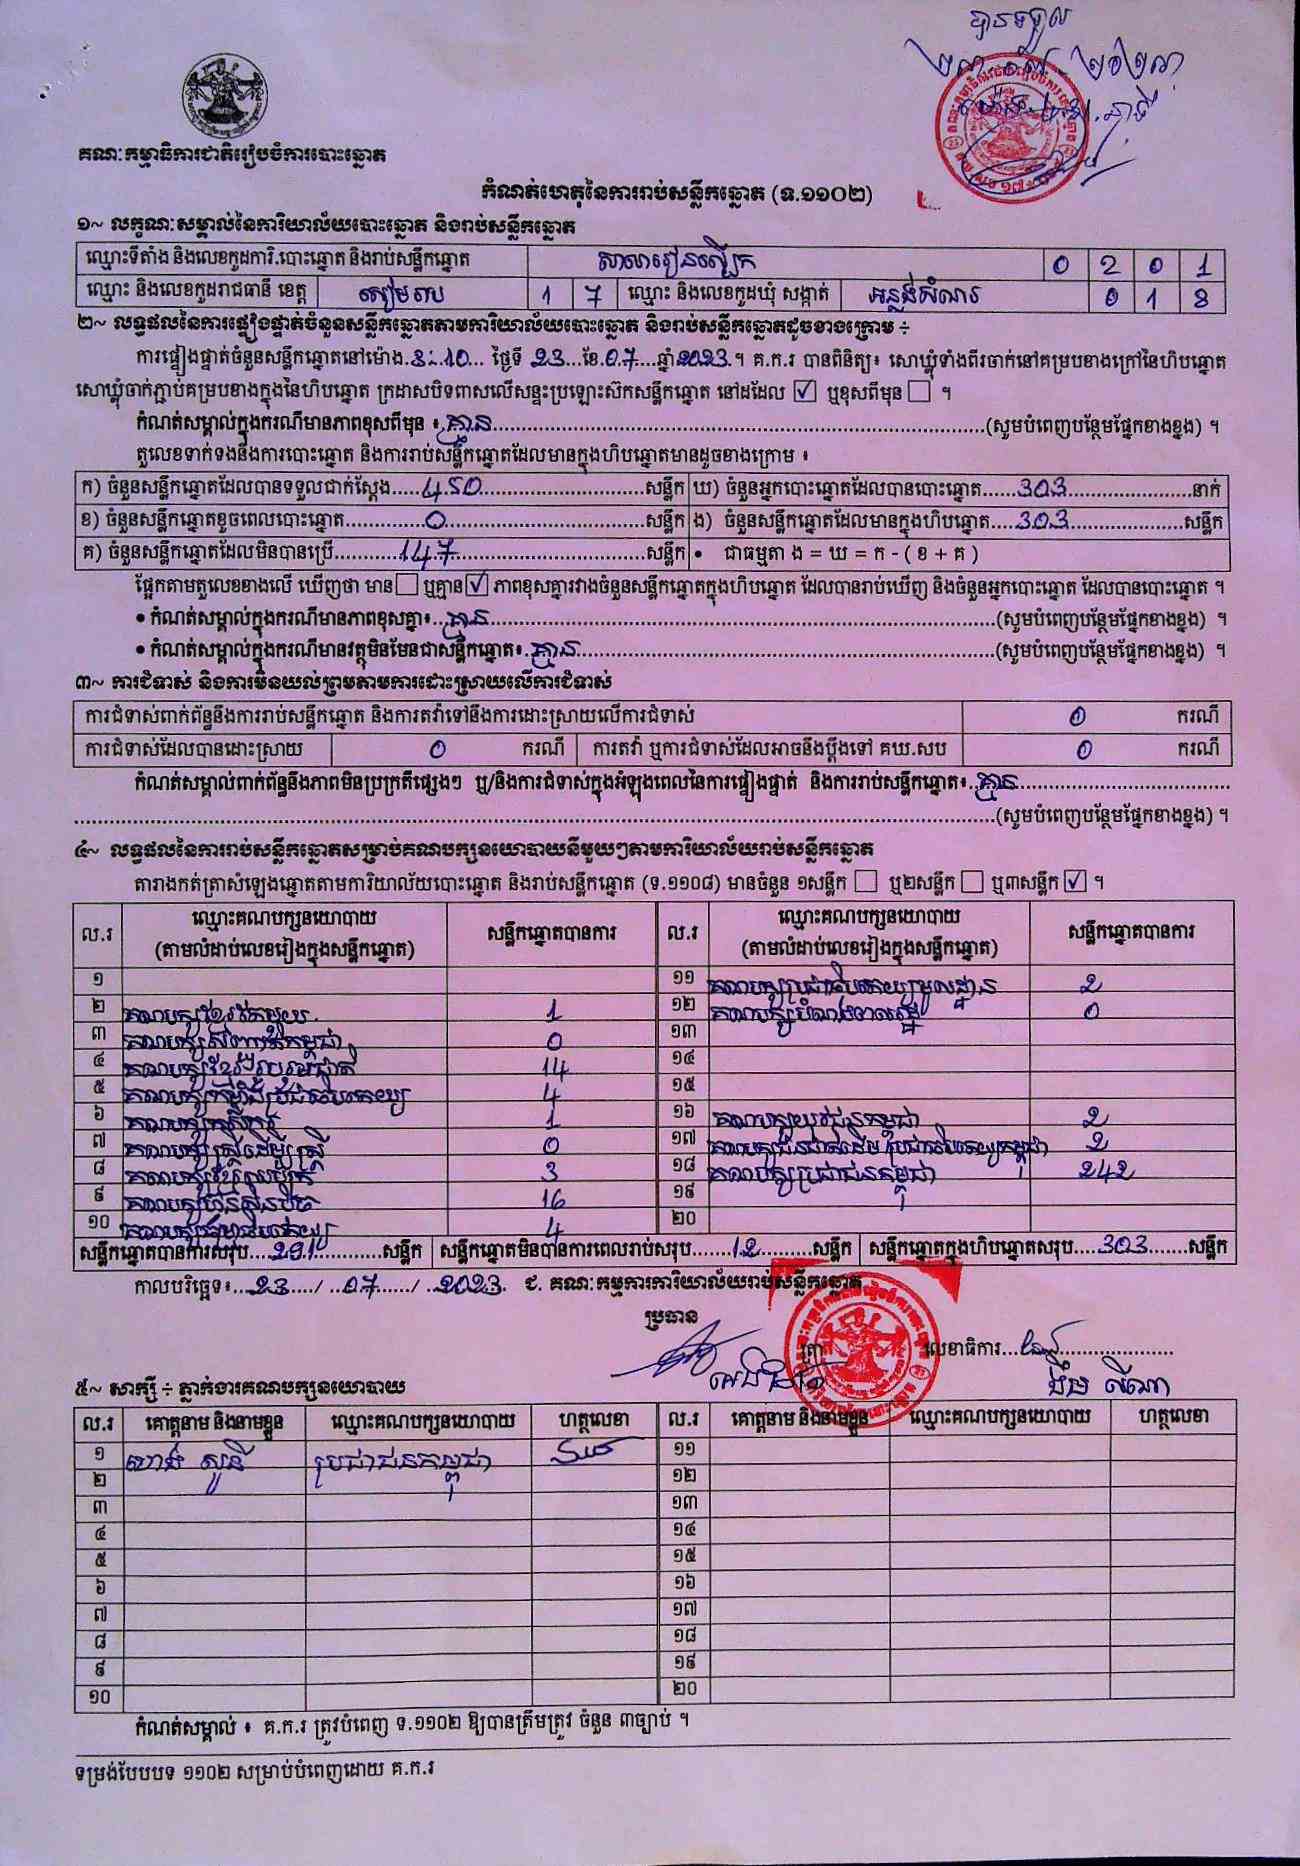 បានទទួល
គណៈកម្មាធិការជាតិរៀបចំការបោះឆ្នោត
កំណត់ហេតុនៃការរាប់សន្លឹកឆ្នោត (ទ.១១០២)
១~ លក្ខណៈសម្គាល់នៃការិយាល័យបោះឆ្នោត និងរាប់សន្លឹកឆ្នោត
ឈ្មោះទីតាំង និងលេខកូដការិ.បោះឆ្នោត និងរាប់សន្លឹកឆ្នោត 0 2 0 1
ឈ្មោះ និងលេខកូដរាជធានី ខេត្ត សៀមរាប 1 7 ឈ្មោះ និងលេខកូដឃុំ សង្កាត់ អន្លង់សំណរ 0 1 8
២~ លទ្ធផលនៃការផ្ទៀងផ្ទាត់ចំនួនសន្លឹកឆ្នោតតាមការិយាល័យបោះឆ្នោត និងរាប់សន្លឹកឆ្នោតដូចខាងក្រោម ÷
ការផ្ទៀងផ្ទាត់ចំនួនសន្លឹកឆ្នោតនៅម៉ោង.3:10... ថ្ងៃទី 23...ខែ.07....ឆ្នាំ2023.។ គ.ក.រ បានពិនិត្យ៖ សោឃ្លុំទាំងពីរចាក់នៅគម្របខាងក្រៅនៃហិបឆ្នោត
សោឃ្លុំចាក់ភ្ជាប់គម្របខាងក្នុងនៃហិបឆ្នោត ក្រដាសបិទពាសលើសន្ទះប្រឡោះស៊កសន្លឹកឆ្នោត នៅដដែល ☑ ឬខុសពីមុន ☐ ។
កំណត់សម្គាល់ក្នុងករណីមានភាពខុសពីមុន ៖ គ្មាន......(សូមបំពេញបន្ថែមផ្នែកខាងខ្នង) ។
តួលេខទាក់ទងនឹងការបោះឆ្នោត និងការរាប់សន្លឹកឆ្នោតដែលមានក្នុងហិបឆ្នោតមានដូចខាងក្រោម ៖
ក) ចំនួនសន្លឹកឆ្នោតដែលបានទទួលជាក់ស្តែង.....450......សន្លឹក ឃ) ចំនួនអ្នកបោះឆ្នោតដែលបានបោះឆ្នោត......303......នាក់
ខ) ចំនួនសន្លឹកឆ្នោតខូចពេលបោះឆ្នោត......0......សន្លឹក ង) ចំនួនសន្លឹកឆ្នោតដែលមានក្នុងហិបឆ្នោត....303......សន្លឹក
គ) ចំនួនសន្លឹកឆ្នោតដែលមិនបានប្រើ......147......សន្លឹក • ជាធម្មតា ង = ឃ = ក - ( ខ + គ )
ផ្អែកតាមតួលេខខាងលើ ឃើញថា មាន ☐ ឬគ្មាន ☑ ភាពខុសគ្នារវាងចំនួនសន្លឹកឆ្នោតក្នុងហិបឆ្នោត ដែលបានរាប់ឃើញ និងចំនួនអ្នកបោះឆ្នោត ដែលបានបោះឆ្នោត ។
• កំណត់សម្គាល់ក្នុងករណីមានភាពខុសគ្នា៖..គ្មាន......(សូមបំពេញបន្ថែមផ្នែកខាងខ្នង) ។
• កំណត់សម្គាល់ក្នុងករណីមានវត្ថុមិនមែនជាសន្លឹកឆ្នោត៖.គ្មាន......(សូមបំពេញបន្ថែមផ្នែកខាងខ្នង) ។
៣~ ការជំទាស់ និងការមិនយល់ព្រមតាមការដោះស្រាយលើការជំទាស់
ការជំទាស់ពាក់ព័ន្ធនឹងការរាប់សន្លឹកឆ្នោត និងការតវ៉ាទៅនឹងការដោះស្រាយលើការជំទាស់ 0 ករណី
ការជំទាស់ដែលបានដោះស្រាយ 0 ករណី ការតវ៉ា ឬការជំទាស់ដែលអាចនឹងប្តឹងទៅ គឃ.សប 0 ករណី
កំណត់សម្គាល់ពាក់ព័ន្ធនឹងភាពមិនប្រក្រតីផ្សេងៗ ឬ/និងការជំទាស់ក្នុងអំឡុងពេលនៃការផ្ទៀងផ្ទាត់ និងការរាប់សន្លឹកឆ្នោត៖..គ្មាន......
......(សូមបំពេញបន្ថែមផ្នែកខាងខ្នង) ។
៤~ លទ្ធផលនៃការរាប់សន្លឹកឆ្នោតសម្រាប់គណបក្សនយោបាយនីមួយៗតាមការិយាល័យរាប់សន្លឹកឆ្នោត
តារាងកត់ត្រាសំឡេងឆ្នោតតាមការិយាល័យបោះឆ្នោត និងរាប់សន្លឹកឆ្នោត (ទ.១១០៨) មានចំនួន ១សន្លឹក ☐ ឬ២សន្លឹក ☐ ឬ៣សន្លឹក ☑ ។
ល.រ ឈ្មោះគណបក្សនយោបាយ (តាមលំដាប់លេខរៀងក្នុងសន្លឹកឆ្នោត) សន្លឹកឆ្នោតបានការ ល.រ ឈ្មោះគណបក្សនយោបាយ (តាមលំដាប់លេខរៀងក្នុងសន្លឹកឆ្នោត) សន្លឹកឆ្នោតបានការ
១ ១១ គណបក្សប្រជាធិបតេយ្យមូលដ្ឋាន 2
២ គណបក្សខ្មែរតែមួយ 1 ១២ គណបក្ស 0
៣ គណបក្ស កម្ពុជា 0 ១៣
៤ គណបក្សខ្មែររួបរួមជាតិ 14 ១៤
៥ គណបក្សកម្លាំងប្រជាធិបតេយ្យ 4 ១៥
៦ គណបក្សកសិករ 1 ១៦ គណបក្សយុវជនកម្ពុជា 2
៧ គណបក្សស្ត្រីដើម្បីស្ត្រី 0 ១៧ គណបក្សជនជាតិដើមប្រជាធិបតេយ្យកម្ពុជា 2
៨ គណបក្ស 3 ១៨ គណបក្សប្រជាជនកម្ពុជា 242
៩ គណបក្សហ៊្វុនស៊ិនប៉ិច 16 ១៩
១០ គណបក្សធម្មាធិបតេយ្យ 4 ២០
សន្លឹកឆ្នោតបានការសរុប....291......សន្លឹក សន្លឹកឆ្នោតមិនបានការពេលរាប់សរុប.......12......សន្លឹក សន្លឹកឆ្នោតក្នុងហិបឆ្នោតសរុប....303.......សន្លឹក
កាលបរិច្ឆេទ៖...23..../...07....../...2023. ជ. គណៈកម្មការការិយាល័យរាប់សន្លឹកឆ្នោត
ប្រធាន
លេខាធិការ......
៥~ សាក្សី ÷ ភ្នាក់ងារគណបក្សនយោបាយ
ល.រ គោត្តនាម និងនាមខ្លួន ឈ្មោះគណបក្សនយោបាយ ហត្ថលេខា ល.រ គោត្តនាម និងនាមខ្លួន ឈ្មោះគណបក្សនយោបាយ ហត្ថលេខា
១ ប្រជាជនកម្ពុជា ១១
២ ១២
៣ ១៣
៤ ១៤
៥ ១៥
៦ ១៦
៧ ១៧
៨ ១៨
៩ ១៩
១០ ២០
កំណត់សម្គាល់ ៖ គ.ក.រ ត្រូវបំពេញ ទ.១១០២ ឱ្យបានត្រឹមត្រូវ ចំនួន ៣ច្បាប់ ។
ទម្រង់បែបបទ ១១០២ សម្រាប់បំពេញដោយ គ.ក.រ